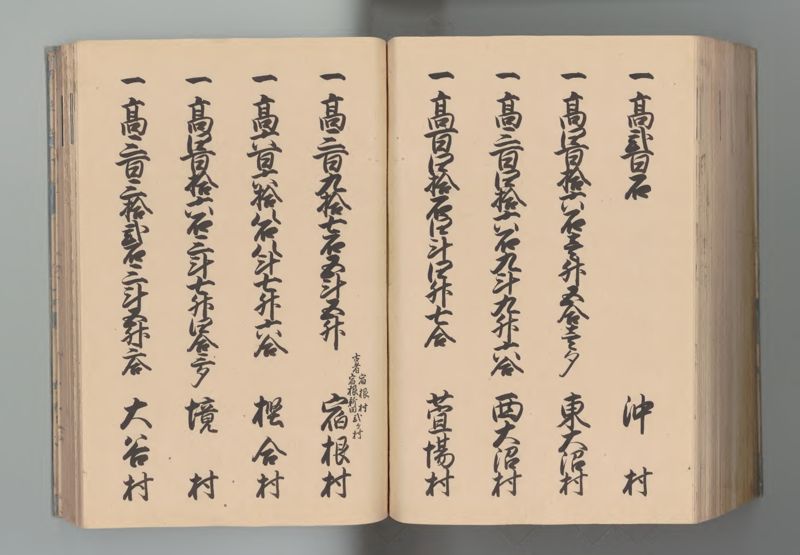 一高弐百石 沖村
一高四百拾六石壱升五合壱夕 東大沼村
一高三百四拾六石九斗九升六合 西大沼村
一高百四拾石四斗四升七合 萱場村
一高三百九拾七石五斗五升 宿根村
古者宿根村
宿根新田弐ヶ村
一高六百六拾八石八斗七升六合 樫合村
一高四百拾六石三斗七升四合三夕 境村
一高三百三拾弐石三斗五升六合 大谷村